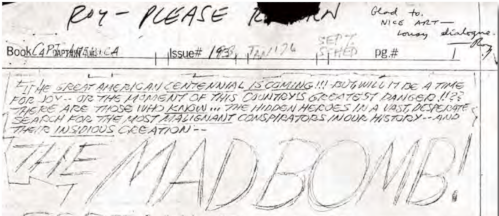 ROY— PLEASE RETURN
Glad to.
NICE ART—
lousy dialogue.
—Roy
Book CAPT. AMERICA Issue# 193 JAN '76 SEPT pg.# 1
THE GREAT AMERICAN CENTENNIAL IS COMING!!! BUT WILL IT BE A TIME
FOR JOY-- OR THE MOMENT OF THIS COUNTRY'S GREATEST DANGER!!??
THERE ARE THOSE WHO KNOW -- THE HIDDEN HEROES IN A VAST, DESPERATE
SEARCH FOR THE MOST MALIGNANT CONSPIRATORS IN OUR HISTORY -- AND
THEIR INSIDIOUS CREATION --
THE MADBOMB!